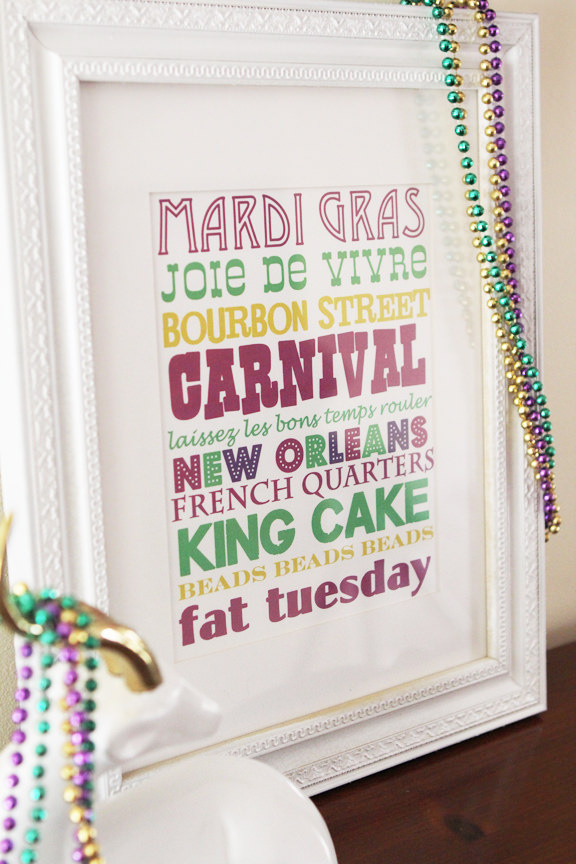 MARDI GRAS
JOIE DE VIVRE
BOURBON STREET
CARNIVAL
laissez les bons temps rouler
NEW ORLEANS
FRENCH QUARTERS
KING CAKE
BEADS BEADS BEADS
fat tuesday